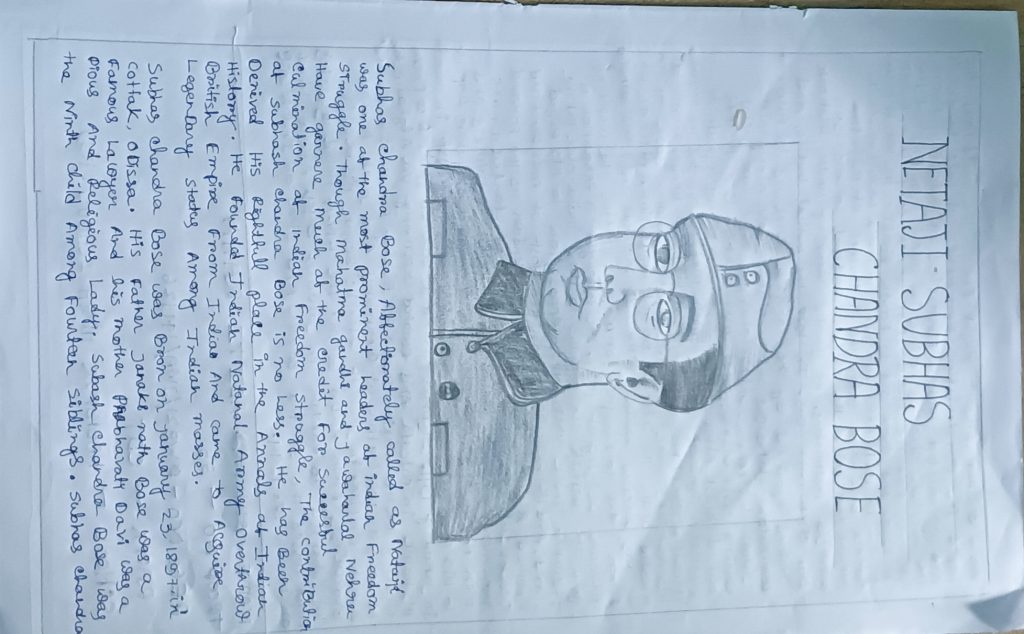 NETAJI SUBHAS
CHANDRA BOSE
Subhas chandra Bose, Affectionately called as Netaji
was one at the most prominent leaders at indian Freedom
struggle. Though mahatma gandhi and Jawaharlal Nehru
Have gannere much at the credit For Successful
culmination at indian Freedom struggle, The contribution
at subhash chandra Bose is no less. He has Been
Denived His Rightful place in the Annals at Indian
History. He Founded Indian National Army overthrow
British Empire From Indian And came to Aquire
Legendary status Among Indian masses.
Subhas chandra Bose was Bron on January 23, 1897 in
cottak, orissa. His Father Janaki nath Bose was a
Famous Lawyer And his mother Prabhavati Davi was a
pious And Religious Lady. Subash Chandra Bose was
the Ninth child Among Fourteen Siblings. Subhas chandra